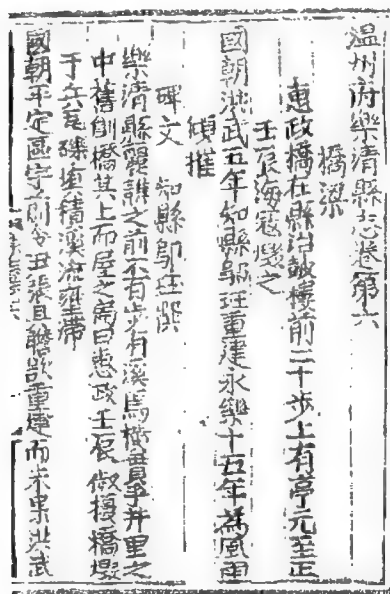 溫州府樂清縣志卷第六
橋梁
惠政橋在縣治鼓樓前二十步上有亭元至正
壬辰海寇燬之
國朝洪武五年知縣鄔玨重建永樂十五年為風雨
傾摧
碑文 知縣鄔玨撰
樂清縣麗譙之前不百步有溪焉橫貫乎井里之
中舊創橋其上而屋之扁曰惠政壬辰俶擾橋燬
于六毛礫堙積溪流壅滯
國朝平定區宇前令丑張且瞻欲重建而未果洪武